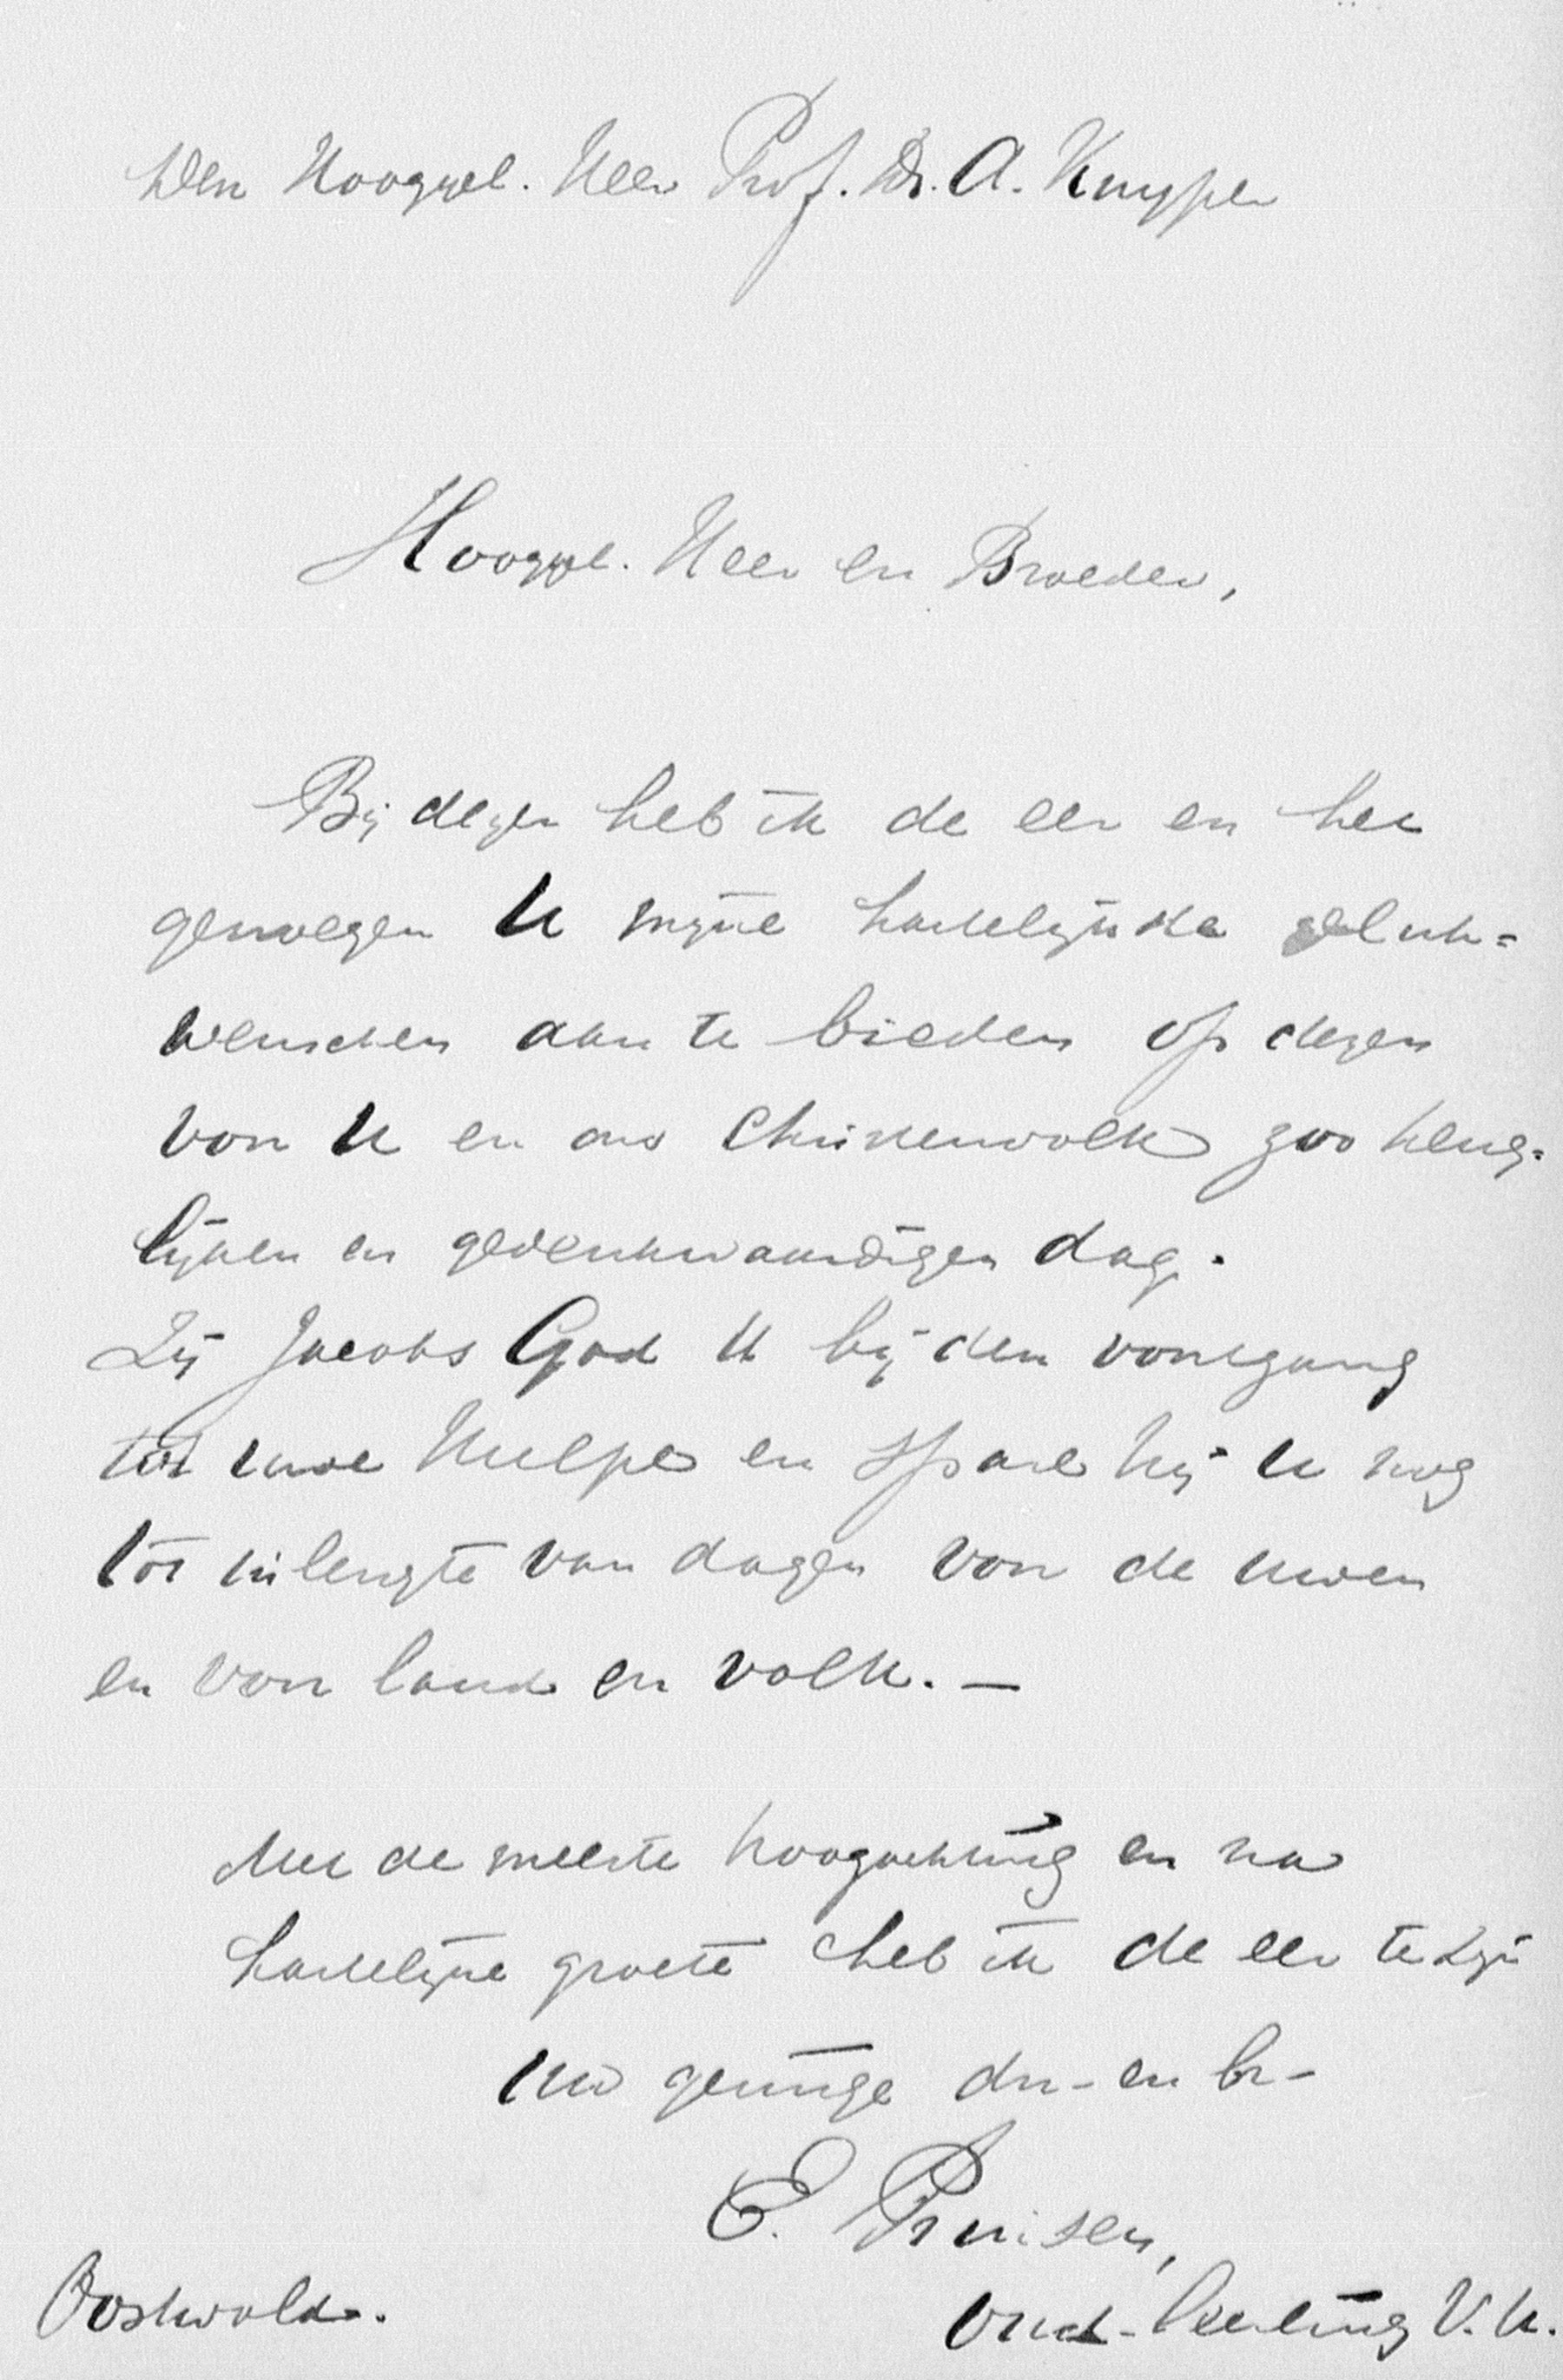 Den Hooggel. Heer Prof. Dr. A. Kuyper
Hooggel. Heer en Broeder,
Bij dezen heb ik de eer en het
genoegen U mijne hartelijke geluk=
wenschen aan te bieden op dezen
voor U en ons Christenvolk zoo heug=
lijken en gedenkwaardigen dag.
Zij Jacobs God U bij den voortgang
tot uwe Hulpe en spare hij U nog
tot in lengte van dagen voor de uwen
en voor land en volk. —
Met de meeste hoogachting en na
hartelijke groete heb ik de eer te zijn
Uw geringe dn- en br-
E. Pruisen,
Oostwold.
Oud-leerling V.U.